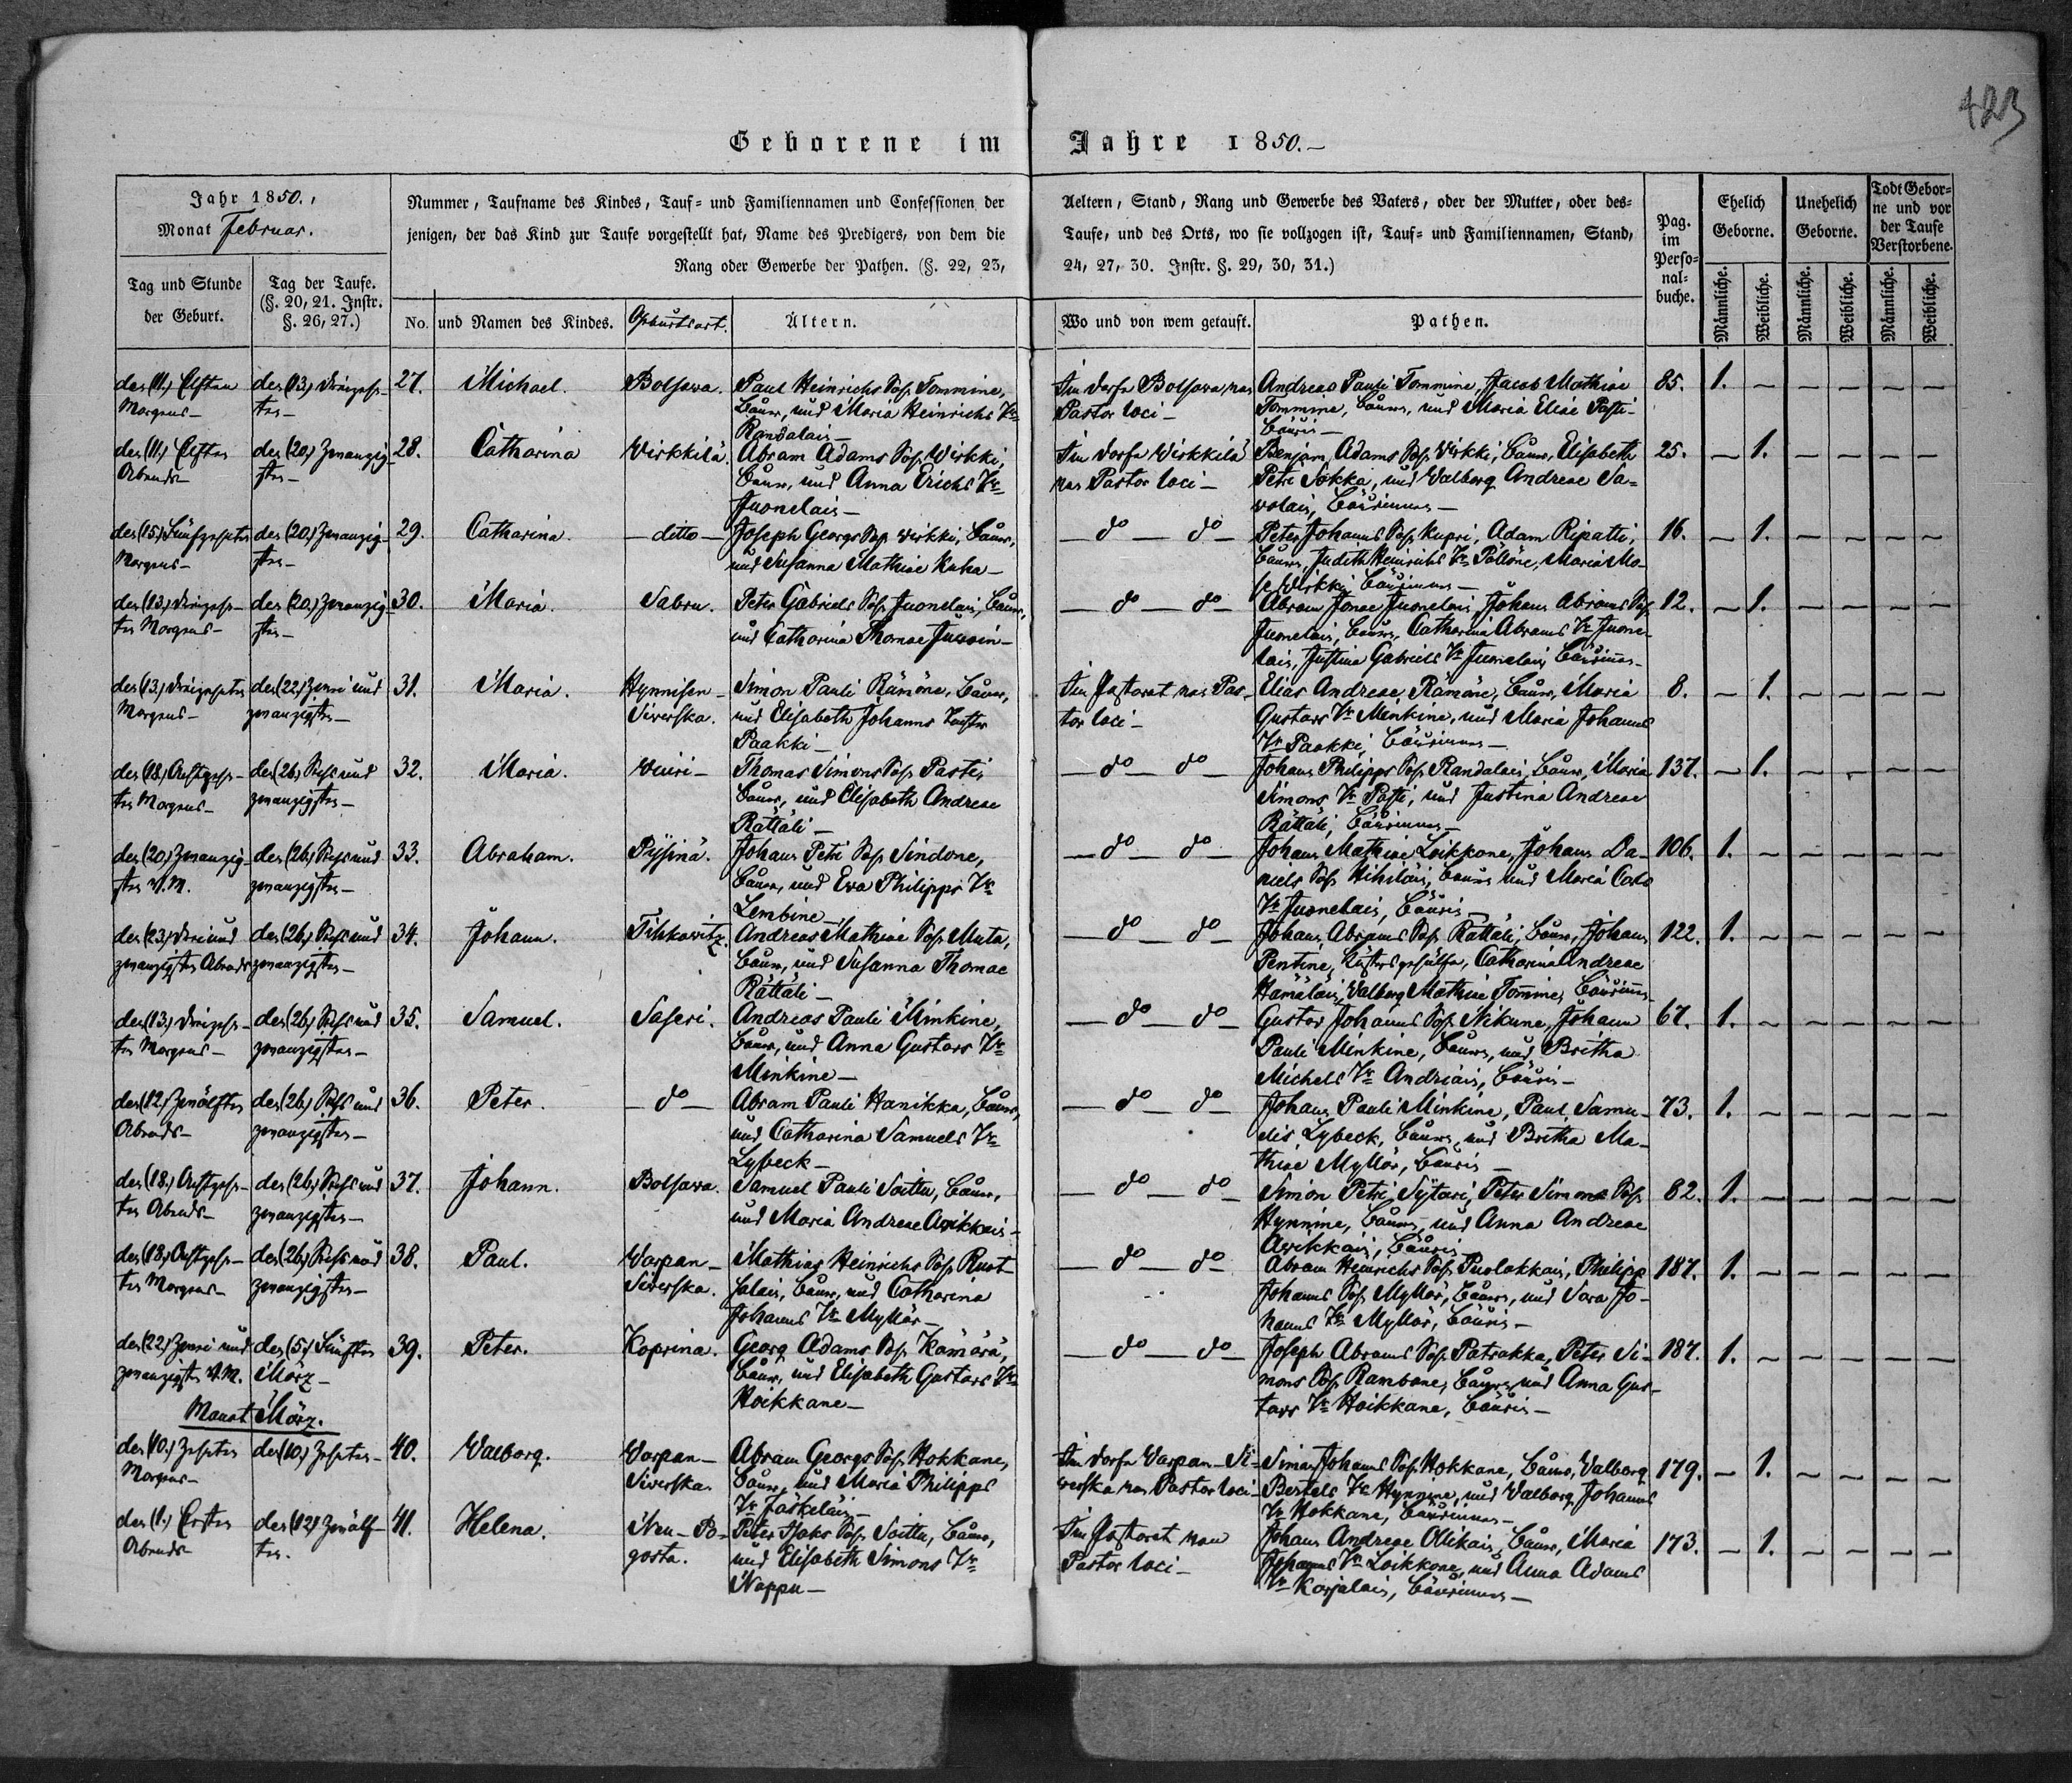 423
Geborene im Jahre 1850.–
Jahr 1850.,
Monat Februar.
Nummer, Taufname des Kindes, Tauf- und Familiennamen und Confessionen der Aeltern, Stand, Rang und Gewerbe des Vaters, oder der Mutter, oder des-
jenigen, der das Kind zur Taufe vorgestellt hat, Name des Predigers, von dem die Taufe, und des Orts, wo sie vollzogen ist, Tauf- und Familiennamen, Stand,
Rang oder Gewerbe der Pathen. (§. 22, 23, 24, 27, 30. Instr. §. 29, 30, 31.)
Pag.
im
Perso-
nal-
buche.
Ehelich
Geborne.
Unehelich
Geborne.
Todt Gebor-
ne und vor
der Taufe
Verstorbene.
Tag und Stunde
der Geburt.
Tag der Taufe.
(§. 20, 21. Instr.
§. 26, 27.)
No. und Namen des Kindes. Geburtsort. Ältern. Wo und von wem getauft. Pathen. Männliche. Weibliche. Männliche. Weibliche. Männliche. Weibliche.
den (11.) Elften
Morgens–
den (13.) dreizehn-
ten–
27. Michael. Bolsowa.
Paul Heinrichs Sohn Tommine,
Bauer, und Maria Heinrichs Tr
Randalais–
Im Dorfe Bolsowa von
Pastor loci–
Andreas Pauli Tommine, Jacob Mathiae
Tommine, Bauern, und Maria Eliae Pasti
Bäurin–
85. 1. – – – – –
den (11.) Elften
Abends–
den (20.) zwanzig-
sten–
28. Catharina Wirkkilä.
Abram Adams Sohn Wirkki,
Bauer, und Anna Erichs Tr
Juonelais–
Im Dorfe Wirkkilä
von Pastor loci–
Benjam. Adams Sohn Wirkki, Bauer, Elisabeth
Petri Sokka, und Walborg Andreae Sa-
wolais, Bäurinnen–
25. – 1. – – – –
den (15.) Fünfzehnten
Morgens–
den (20.) zwanzig-
sten–
29. Catharina. – ditto –
Joseph Georgs Sohn Wirkki, Bauer,
und Susanna Mathiae Kuha–
– do – do –
Peter Johanns Sohn Kupri, Adam Ripatti,
Bauern, Judith Heinrichs Tr Pöllöne, Maria Mo-
se Wirkki, Bäurinnen–
16. – 1. – – – –
den (13.) dreizehn-
ten Morgens–
den (20.) zwanzig-
sten–
30. Maria. Sabru.
Peter Gabriels Sohn Juonelais, Bauer,
und Catharina Thomae Jussoin–
– do – do –
Abram Jonae Juonelais, Johann Abrams Sohn
Juonelais, Bauern, Catharina Abrams Tr Juone-
lais, Justina Gabriels Tr Juonelais, Bäurinnen–
12. – 1. – – – –
den (13.) dreizehnten
Morgens–
den (22.) zwei und
zwanzigsten–
31. Maria. Hynnisen-
Siwerska.
Simon Pauli Rämöne, Bauer,
und Elisabeth Johanns Tochter
Paakki–
Im Pastorat von Pas-
tor loci–
Elias Andreae Rämöne, Bauer, Maria
Gustavs Tr Minkine, und Maria Johanns
Tr Paakki, Bäurinnen–
8. – 1. – – – –
den (18.) Achtzehn-
ten Morgens–
den (26.) Sechs und
zwanzigsten–
32. Maria. Wuiri–
Thomas Simons Sohn Pasti,
Bauer, und Elisabeth Andreae
Rättäli–
– do – do –
Johann Philipps Sohn Randalais, Bauer, Maria
Simons Tr Pasti, und Justina Andreae
Rättäli, Bäurinnen–
137. – 1. – – – –
den (20.) zwanzig-
sten N.M.
den (26.) Sechs und
zwanzigsten–
33. Abraham. Pysinä.
Johann Petri Sohn Sindone,
Bauer, und Ewa Philipps Tr
Lembine–
– do – do –
Johann Mathiae Loikkone, Johann Da-
niels Sohn Hihiläin, Bauern und Maria
Tr Juonelais, Bäurin–
106. 1. – – – – –
den (23.) drei und
zwanzigsten Abends
den (26.) Sechs und
zwanzigsten–
34. Johann. Tihkowitz.
Andreas Mathiae Sohn Muta,
Bauer, und Susanna Thomae
Rättäli–
– do – do –
Johann Abrams Sohn Rättäli, Bauer, Johann
Pentine, Küstersgehülfe, Catharina Andreae
Hämäläin, Walborg Mathiae Tommine, Bäurinnen–
122. 1. – – – – –
den (13.) dreizehn-
ten Morgens–
den (26.) Sechs und
zwanzigsten–
35. Samuel. Saseri.
Andreas Pauli Minkine,
Bauer, und Anna Gustavs Tr
Minkine–
– do – do –
Gustav Johanns Sohn Nikune, Johann
Pauli Minkine, Bauern, und Britha
Michels Tr Andriäis, Bäurin–
67. 1. – – – – –
den (12.) zwölften
Abends–
den (26.) Sechs und
zwanzigsten–
36. Peter. – do –
Abram Pauli Hanikka, Bauer,
und Catharina Samuels Tr
Lybeck–
– do – do –
Johann Pauli Minkine, Paul Samu-
elis Lybeck, Bauern, und Britha Ma-
thiae Myllär, Bäurin–
73. 1. – – – – –
den (18.) Achtzehn-
ten Abends–
den (26.) Sechs und
zwanzigsten–
37. Johann. Bolsowa.
Samuel Pauli Soittu, Bauer,
und Maria Andreae Awikkais–
– do – do –
Simon Petri Sytari, Peter Simons Sohn
Hynnine, Bauern, und Anna Andreae
Awikkais, Bäurin–
82. 1. – – – – –
den (18.) Achtzehn-
ten Morgens–
den (26.) Sechs und
zwanzigsten–
38. Paul. Warpan-
Siwerska.
Mathias Heinrichs Sohn Ruot-
salais, Bauer, und Catharina
Johanns Tr Myllär–
– do – do –
Abram Heinrichs Sohn Puolakkais, Philipp
Johanns Sohn Myllär, Bauern, und Sara Jo-
hanns Tr Myllär, Bäurin–
187. 1. – – – – –
den (22.) zwei und
zwanzigsten N.M.
den (5.) Fünften
März–
39. Peter. Koprina.
Georg Adams Sohn Kämärä,
Bauer, und Elisabeth Gustavs Tr
Hoikkane–
– do – do –
Joseph Abrams Sohn Patrakka, Peter Si-
mons Sohn Rambone, Bauern, und Anna Gus-
tavs Tr Hoikkane, Bäurin–
187. 1. – – – – –
Monat März.
den (10.) Zehnten
Morgens–
den (10.) Zehnten–
40. Walborg. Warpan-
Siwerska.
Abram Georgs Sohn Hokkane,
Bauer, und Maria Philipps
Tr Jäskeläin–
Im Dorfe Warpan-Si-
werska von Pastor loci–
Simon Johanns Sohn Hokkane, Bauer, Walborg
Bertels Tr Hynnine, und Walborg Johanns
Tr Hokkane, Bäurinnen–
179. – 1. – – – –
den (1.) Ersten
Abends–
den (12.) Zwölf-
ten.
41. Helena. Neu-Po-
gosta.
Peter Isaks Sohn Soittu, Bauer,
und Elisabeth Simons Tr
Nappu–
Im Pastorat von
Pastor loci–
Johann Andreae Olikais, Bauer, Maria
Johanns Tr Loikkone, und Anna Adams
Tr Korjalais, Bäurinnen–
173. – 1. – – – –